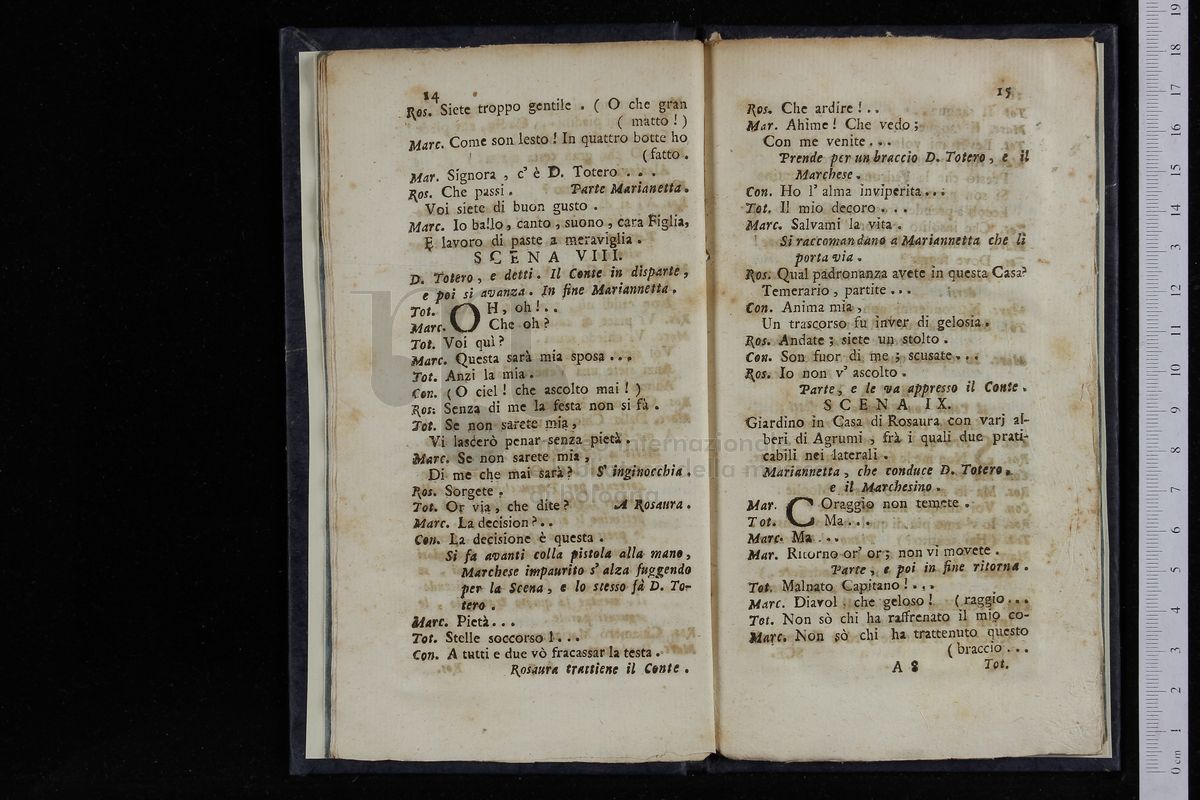 14
Ros. Siete troppo gentile . ( O che gran
( matto ! )
Marc. Come son lesto ! In quattro botte ho
(fatto .
Mar. Signora , c' è D. Totero . . .
Ros. Che passi . Parte Marianetta .
Voi siete di buon gusto .
Marc. Io ballo , canto , suono , cara Figlia,
E lavoro di paste a meraviglia .
SCENA VIII.
D. Totero , e detti . Il Conte in disparte ,
e poi si avanza . In fine Mariannetta .
Tot. OH, oh ! . .
Marc. Che oh ?
Tot. Voi quì ?
Marc. Questa sarà mia sposa . . .
Tot. Anzi la mia .
Con. ( O ciel ! che ascolto mai ! )
Ros: Senza di me la festa non si fà .
Tot. Se non sarete mia ,
Vi lascerò penar senza pietà .
Marc. Se non sarete mia ,
Di me che mai sarà ? S' inginocchia .
Ros. Sorgete .
Tot. Or via , che dite ? A Rosaura .
Marc. La decision ? . .
Con. La decisione è questa .
Si fa avanti colla pistola alla mano ,
Marchese impaurito s' alza fuggendo
per la Scena , e lo stesso fà D. To-
tero .
Marc. Pietà . . .
Tot. Stelle soccorso ! . . .
Con. A tutti e due vò fracassar la testa .
Rosaura trattiene il Conte .
15
Ros. Che ardire ! . .
Mar. Ahime ! Che vedo ;
Con me venite . . .
Prende per un braccio D. Totero , e il
Marchese .
Con. Ho l' alma inviperita . . .
Tot. Il mio decoro . . .
Marc. Salvami la vita .
Si raccomandano a Mariannetta che li
porta via .
Ros. Qual padronanza avete in questa Casa?
Temerario , partite . . .
Con. Anima mia ,
Un trascorso fu inver di gelosia .
Ros. Andate ; siete un stolto .
Con. Son fuor di me ; scusate . . .
Ros. Io non v' ascolto .
Parte , e le va appresso il Conte .
SCENA IX.
Giardino in Casa di Rosaura con varj al-
beri di Agrumi , frà i quali due prati-
cabili nei laterali .
Mariannetta , che conduce D. Totero ,
e il Marchesino .
Mar. COraggio non temete .
Tot. Ma . . .
Marc. Ma . . .
Mar. Ritorno or' or ; non vi movete .
Parte , e poi in fine ritorna .
Tot. Malnato Capitano ! . . .
Marc. Diavol che geloso ! (raggio . . .
Tot. Non sò chi ha raffrenato il mio co-
Marc. Non sò chi ha trattenuto questo
( braccio . . .
A 8 Tot.
internazionale
della m
di bologna
0 cm 1 2 3 4 5 6 7 8 9 10 11 12 13 14 15 16 17 18 19